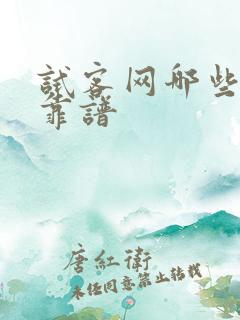 試客网哪些
靠譜
唐紅衛
未经同意禁止转载